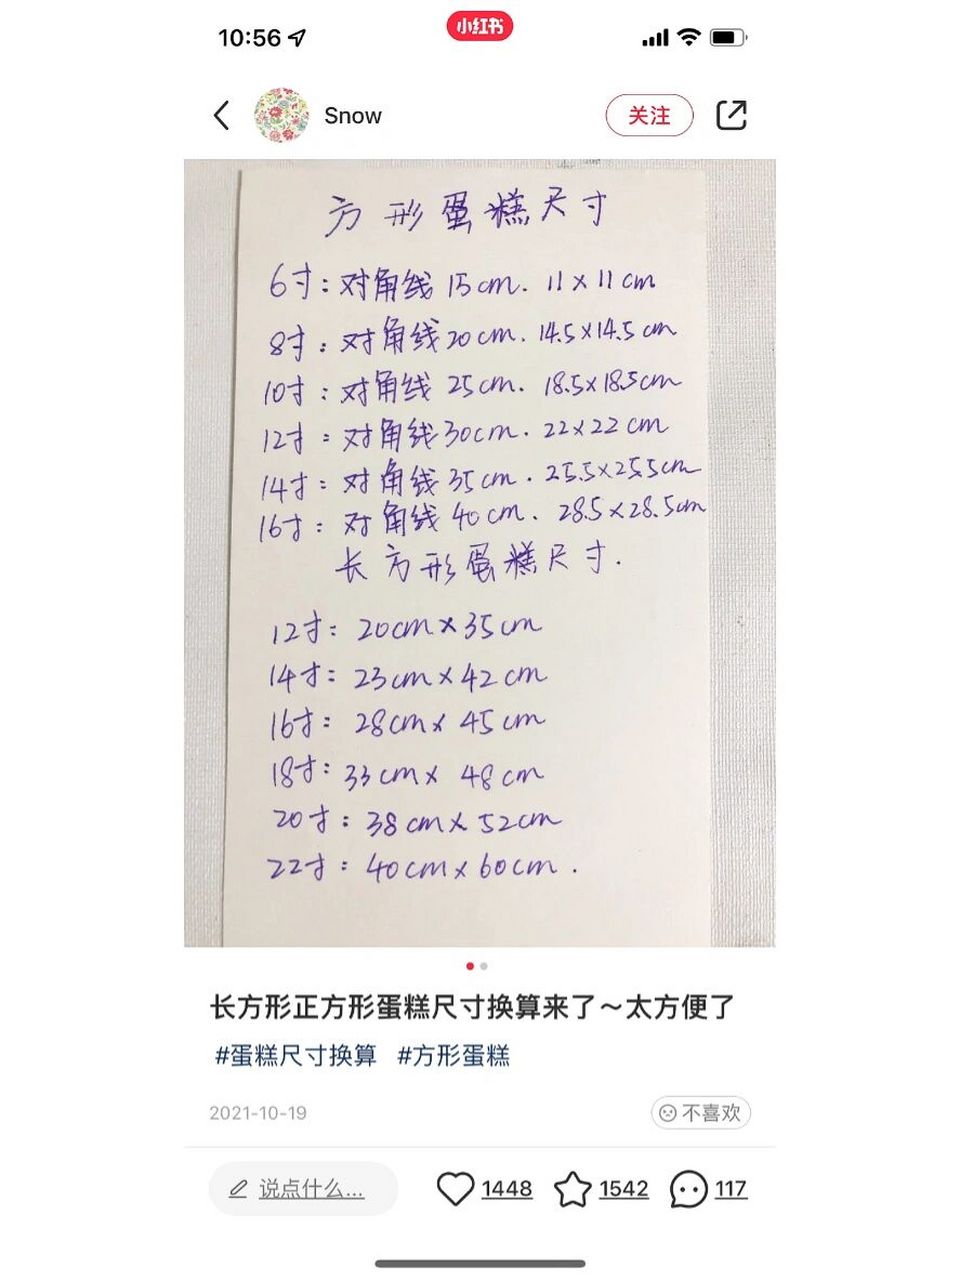 10:56
小红书
Snow
关注
方形蛋糕尺寸
6寸:对角线15cm. 11×11cm
8寸:对角线20cm. 14.5×14.5cm
10寸:对角线 25cm. 18.5×18.5cm
12寸:对角线30cm. 22×22cm
14寸:对角线35cm. 25.5×25.5cm
16寸:对角线40cm. 28.5×28.5cm
长方形蛋糕尺寸.
12寸:20cm×35cm
14寸:23cm×42cm
16寸:28cm×45cm
18寸:33cm×48cm
20寸:38cm×52cm
22寸:40cm×60cm.
长方形正方形蛋糕尺寸换算来了～太方便了
#蛋糕尺寸换算 #方形蛋糕
2021-10-19
不喜欢
说点什么...
1448
1542
117